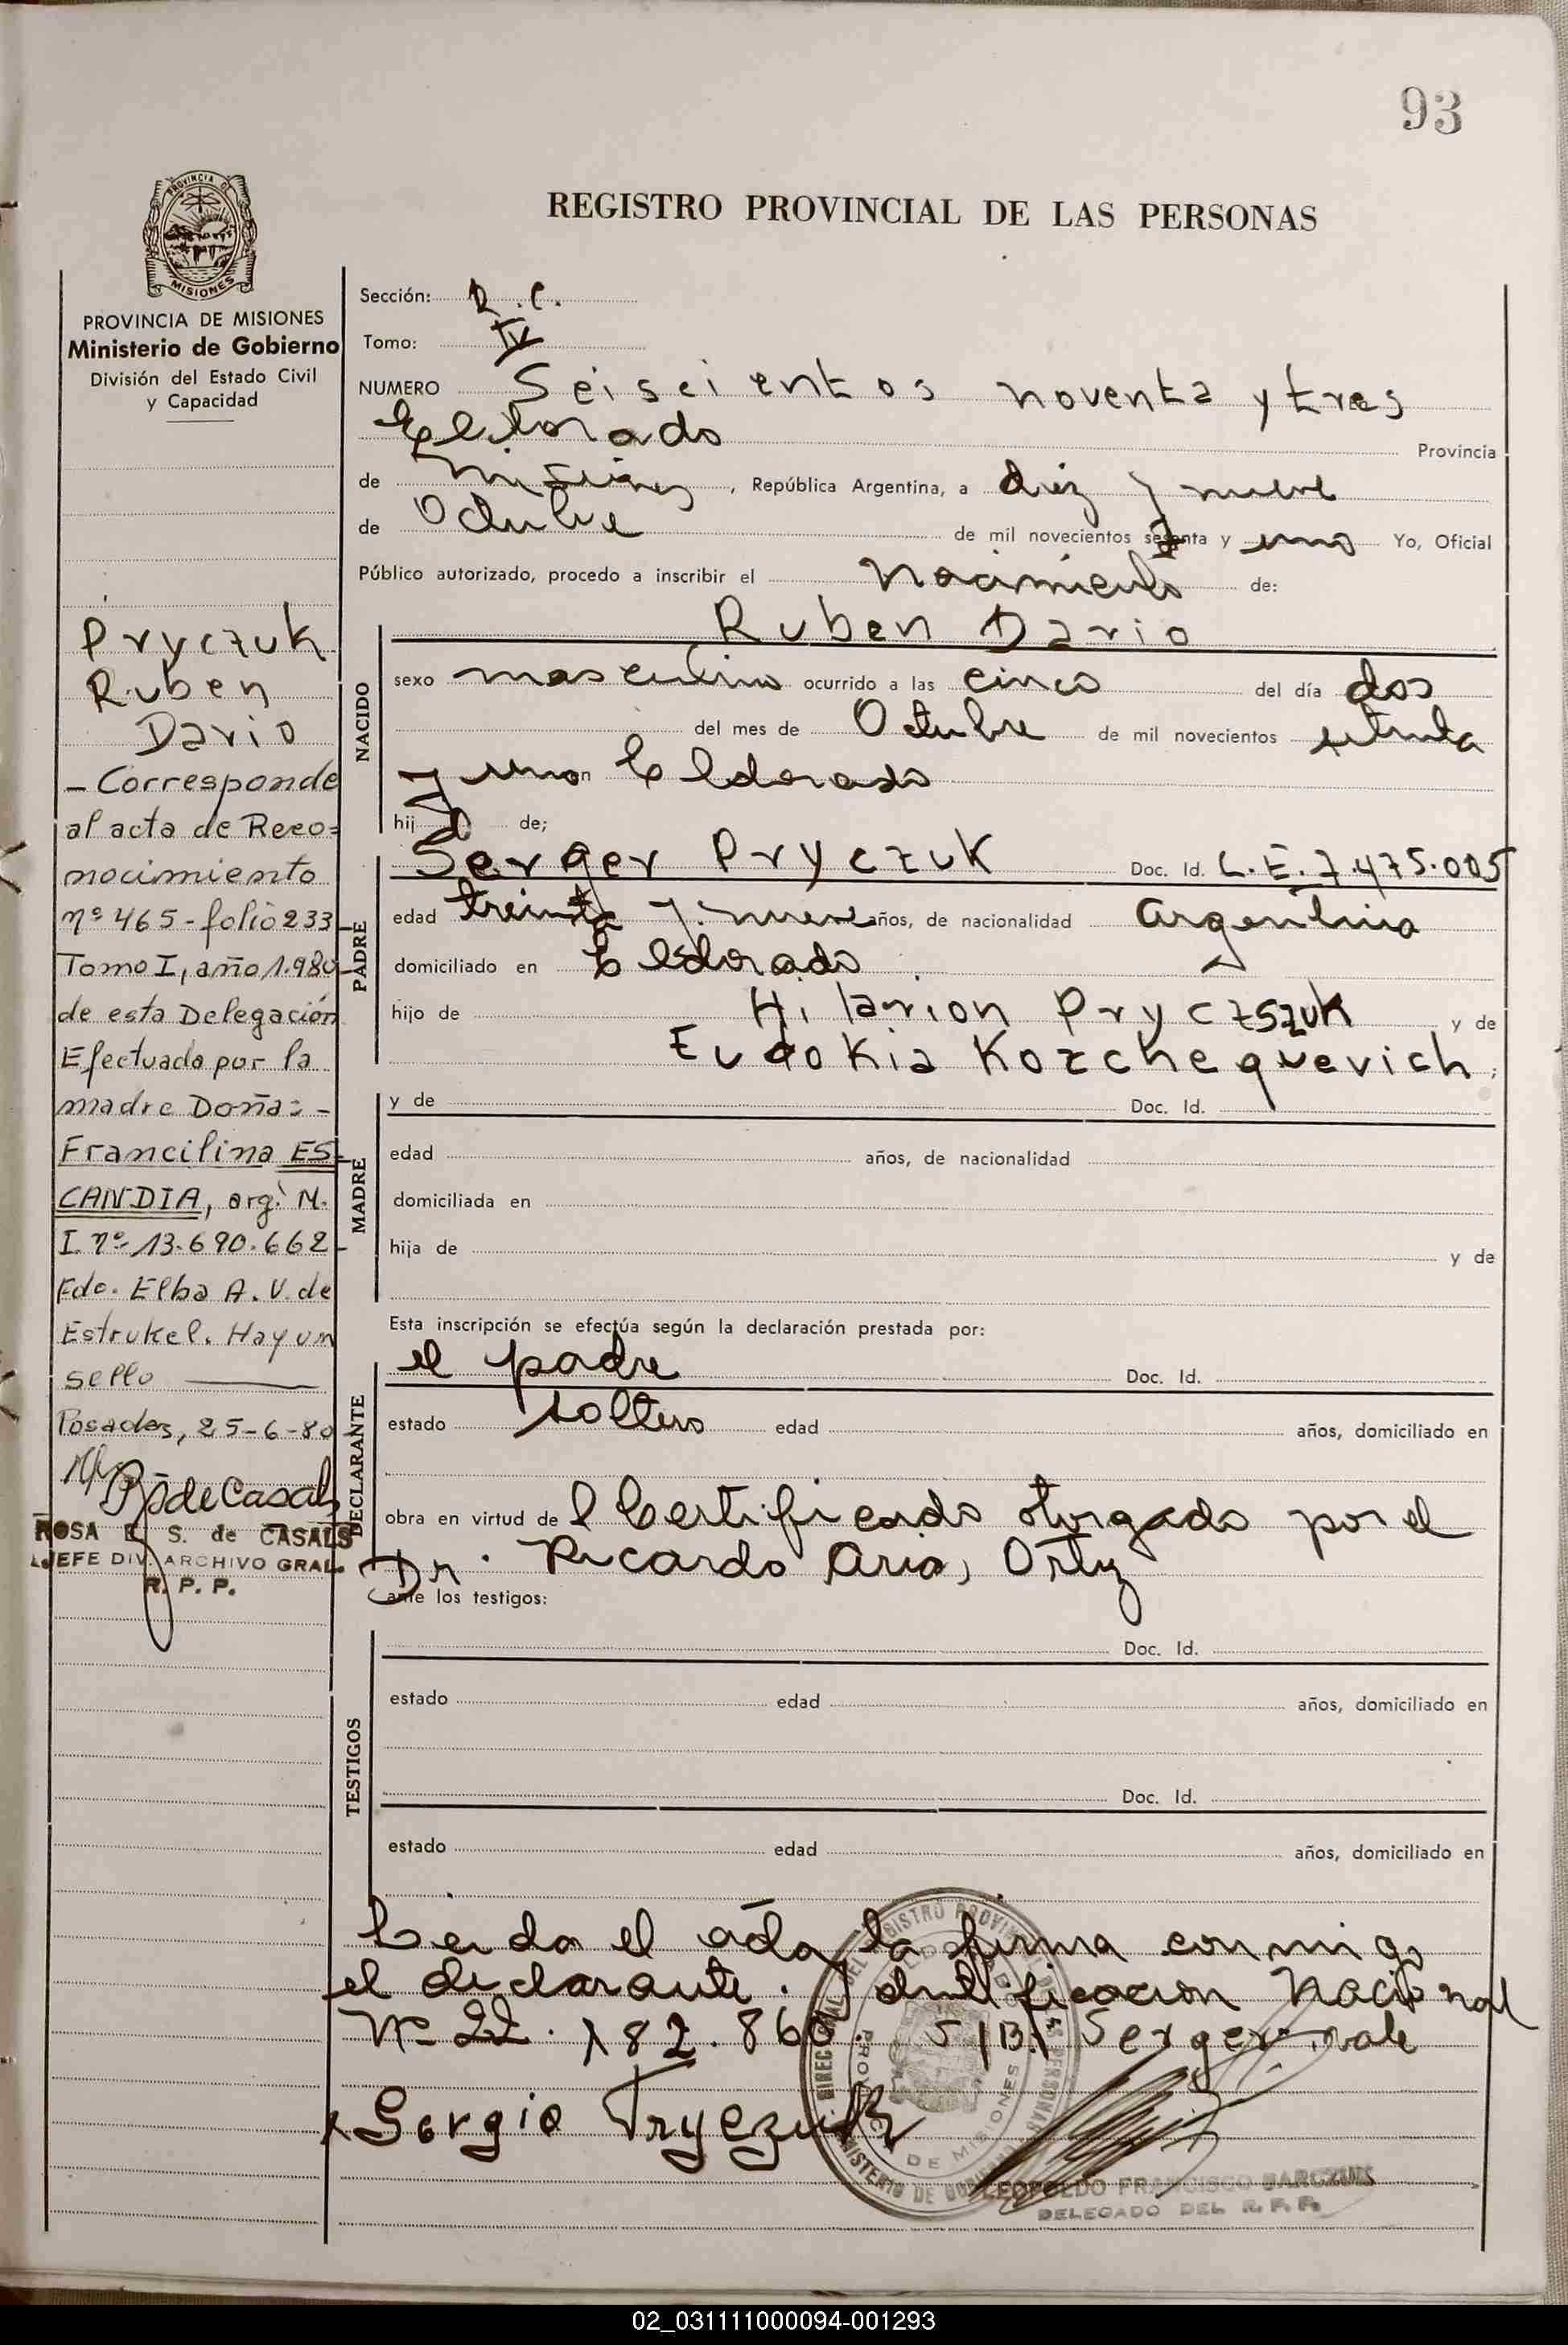 93
REGISTRO PROVINCIAL DE LAS PERSONAS
PROVINCIA DE
MISIONES
PROVINCIA DE MISIONES
Ministerio de Gobierno
División del Estado Civil
y Capacidad
Pryczuk
Ruben
Dario
- Corresponde
al acta de Reco=
nocimiento
nº 465 - folio 233
Tomo I, año 1.980
de esta Delegación
Efectuado por la
madre Doña: -
Francilina ES-
CANDIA, arg. M.
I. nº 13.690.662
Fdo. Elba A. V. de
Estrukel. Hay un
sello
Posadas, 25-6-80
de Casals
ROSA E. S. de CASALS
JEFE DIV. ARCHIVO GRAL.
R. P. P.
Sección: R.C.
Tomo: IV
NUMERO Seiscientos noventa y tres
Eldorado Provincia
de Misiones, República Argentina, a diez y nueve
de Octubre de mil novecientos setenta y uno Yo, Oficial
Público autorizado, procedo a inscribir el Nacimiento de:
NACIDO
Ruben Dario
sexo masculino ocurrido a las cinco del día dos
del mes de Octubre de mil novecientos setenta
y uno en Eldorado
hijo de;
PADRE
Serger Pryczuk Doc. Id. L.E. 7.475.005
edad treinta y nueve años, de nacionalidad Argentino
domiciliado en Eldorado
hijo de Hilarion Pryczszuk y de
Eudokia Korchequevich;
MADRE
y de Doc. Id.
edad años, de nacionalidad
domiciliada en
hija de y de
Esta inscripción se efectúa según la declaración prestada por:
DECLARANTE
el padre Doc. Id.
estado soltero edad años, domiciliado en
obra en virtud de l Certificado otorgado por el
Dr. Ricardo Arias Ortiz
ante los testigos:
TESTIGOS
Doc. Id.
estado edad años, domiciliado en
Doc. Id.
estado edad años, domiciliado en
Leida el acta, la firma conmigo
el declarante. Identificacion Nacional
Nº 22.182.860. S/B/ Serger vale
Sergio Pryczuk
DE MISIONES
LEOPOLDO FRANCISCO
DELEGADO DEL R. P. P.
02_031111000094-001293